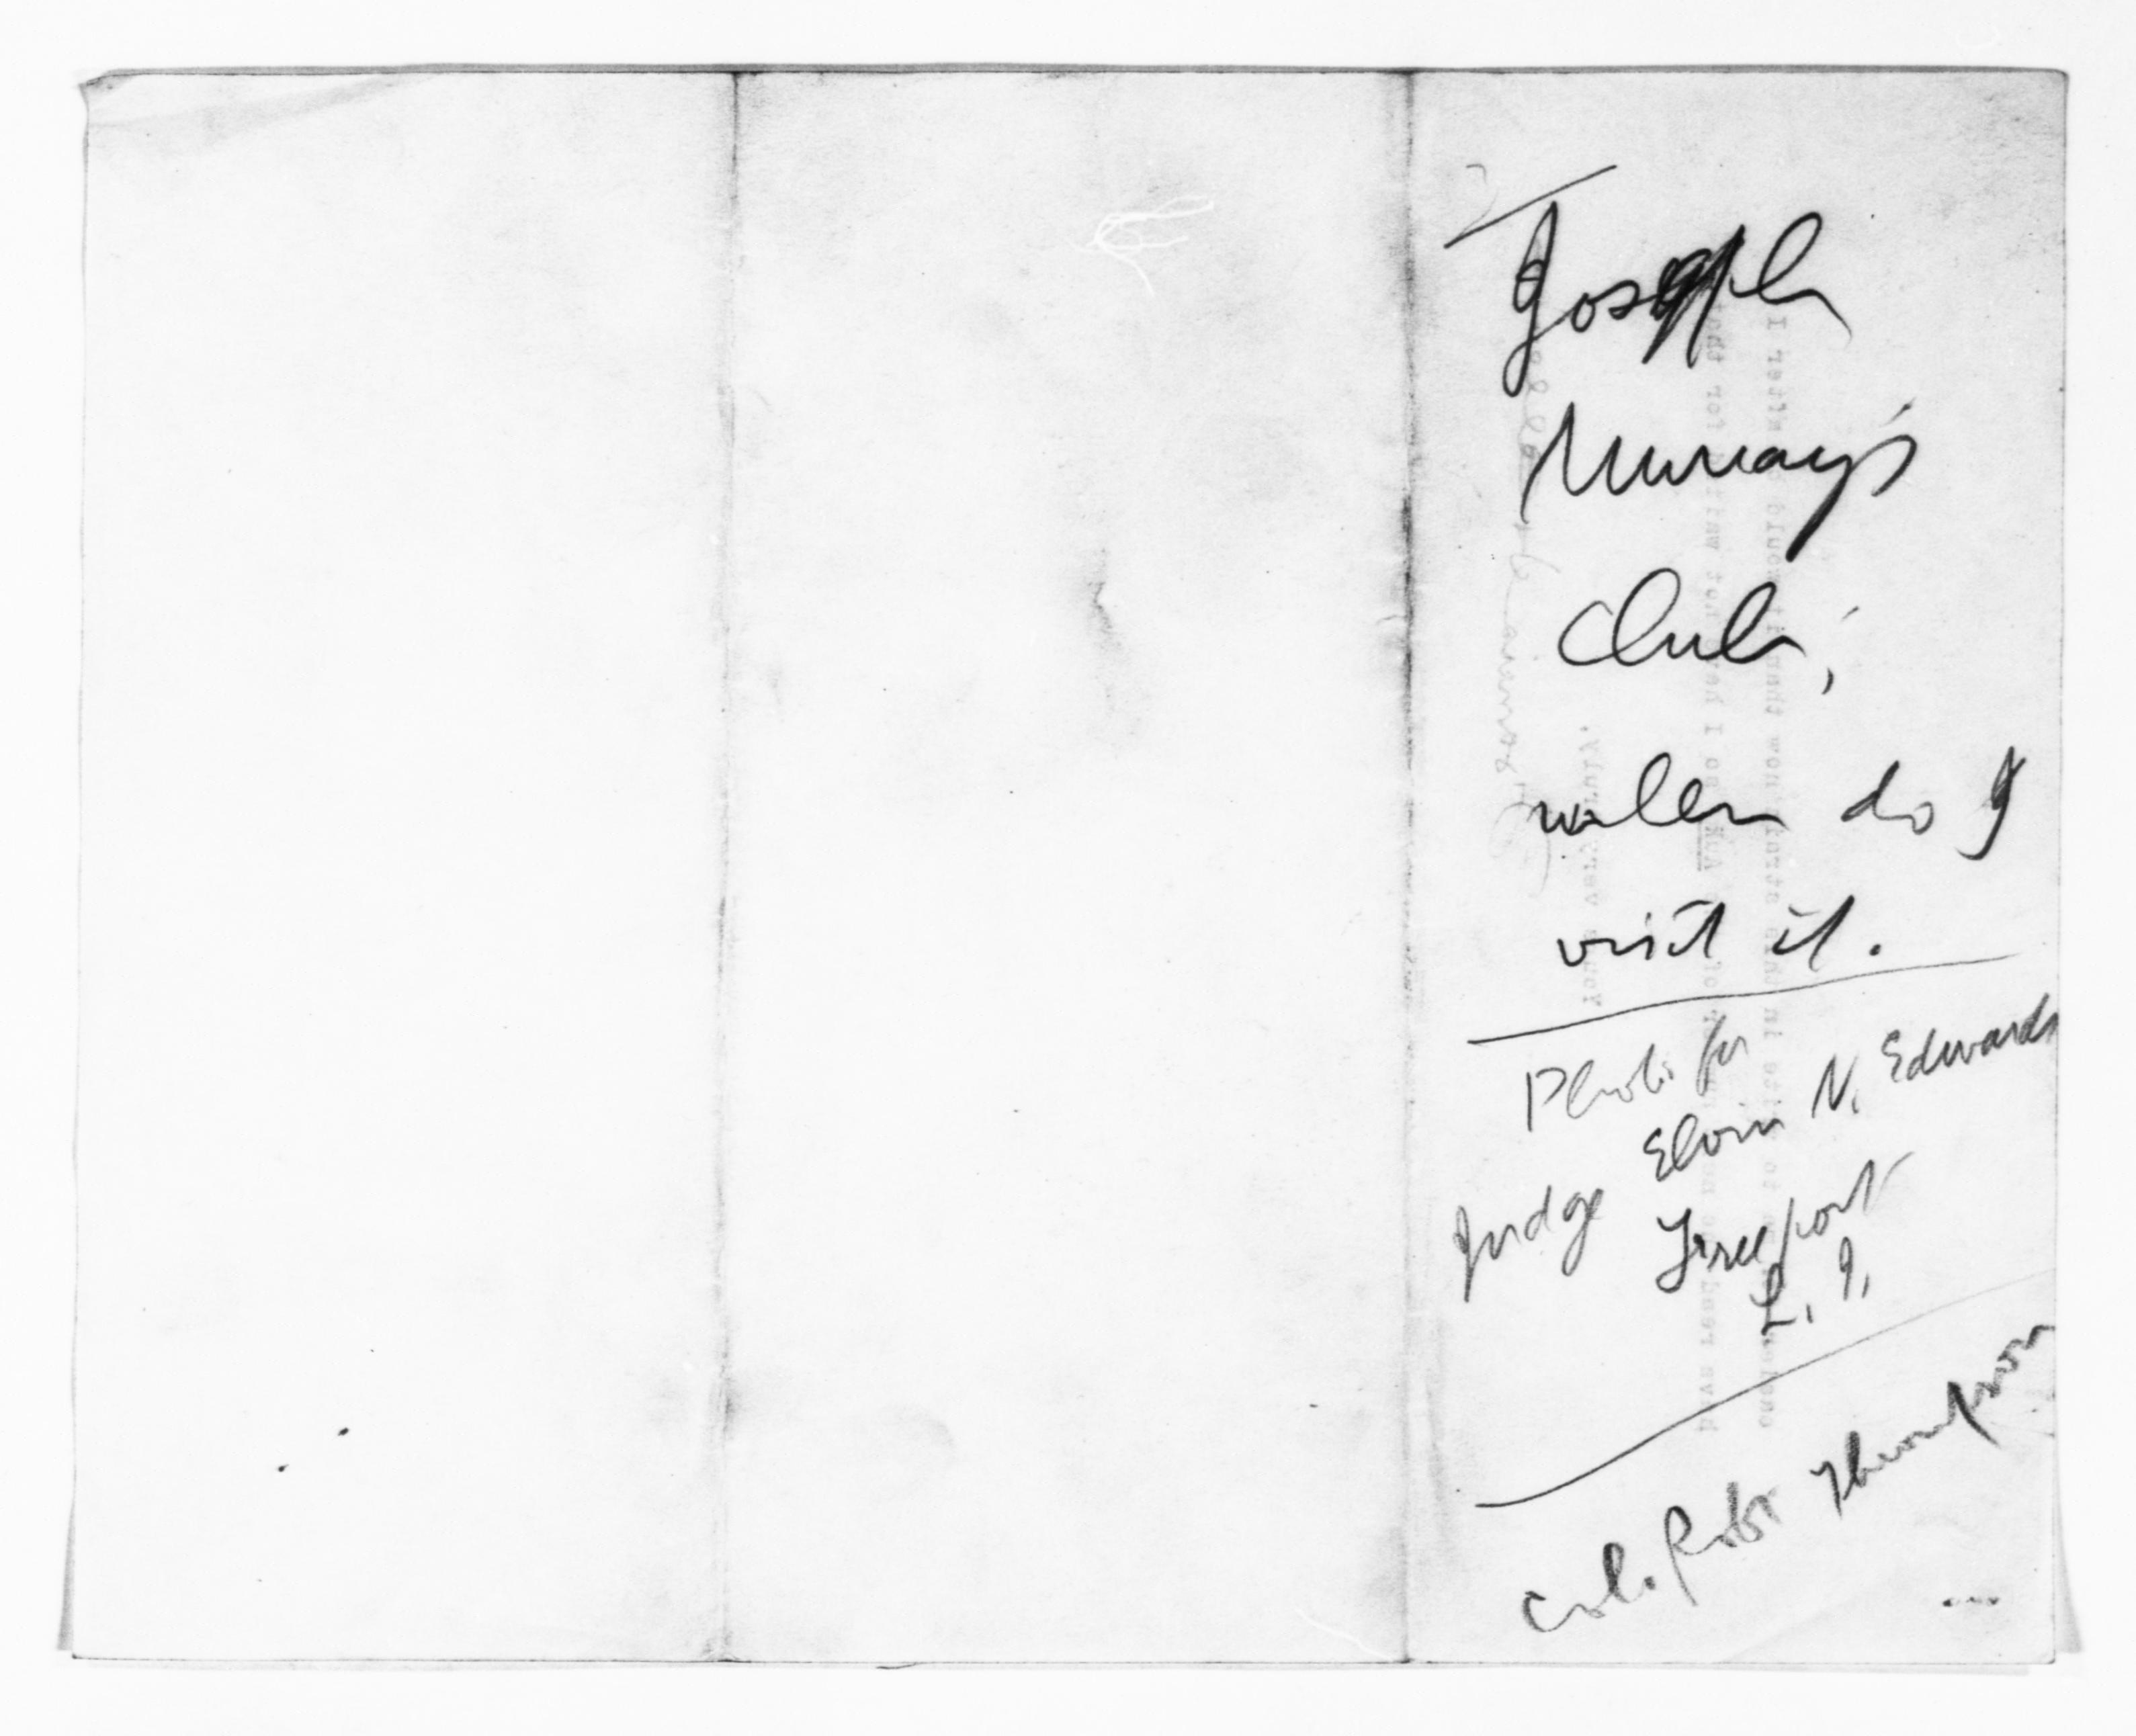 Joseph
Murray's
Club;
when do I
visit it.
Photo for
Judge Elvin N. Edwards
Freeport
L. I.
Col. Robt Thompson